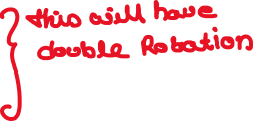 this will have
double Robation